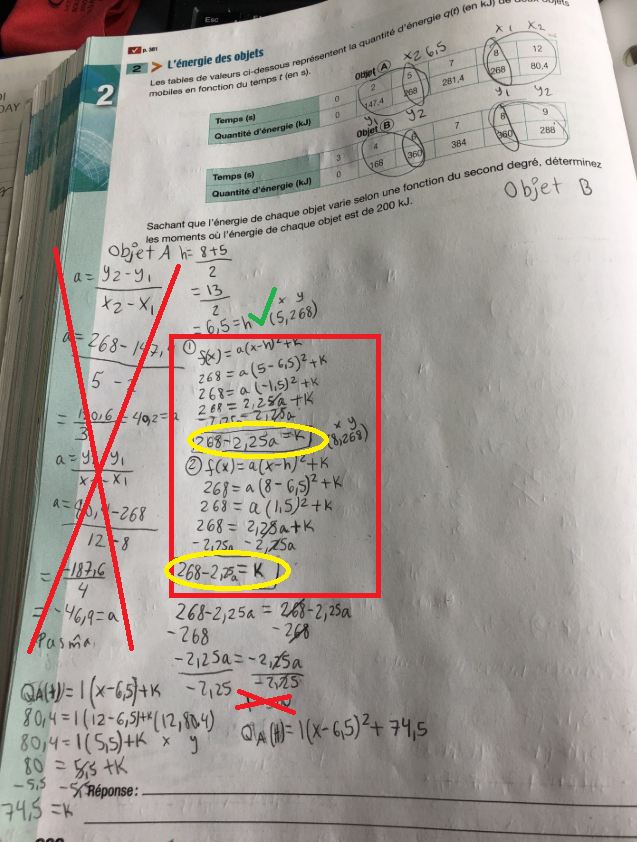 Esc
p. 361
2 > L'énergie des objets
Les tables de valeurs ci-dessous représentent la quantité d'énergie q(t) (en kJ) de deux objets
mobiles en fonction du temps t (en s).
2
x2 6,5 x1 x2
Objet A
Temps (s) 0 2 5 7 8 12
Quantité d'énergie (kJ) 0 147,4 268 281,4 268 80,4
y1 y2 y1 y2
Objet B
Temps (s) 3 4 6 7 8 9
Quantité d'énergie (kJ) 0 168 360 384 360 288
Sachant que l'énergie de chaque objet varie selon une fonction du second degré, déterminez
les moments où l'énergie de chaque objet est de 200 kJ.
Objet B
Objet A h = 8+5
2
= 13
2
= 6,5 = h
x y
(5,268)
a = y2 - y1
x2 - x1
a = 268 - 147,
5 -
= 40,2 = a
a = 80,4 - 268
12 - 8
= -187,6
4
= -46,9 = a
Pas
① f(x) = a(x-h)²+K
268 = a(5-6,5)²+K
268 = a(-1,5)²+K
268 = 2,25a+K
-2,25 = 2,25a
268-2,25a = K
x y
(8,268)
② f(x) = a(x-h)²+K
268 = a(8-6,5)²+K
268 = a(1,5)²+K
268 = 2,25a+K
-2,25a -2,25a
268-2,25a = K
268-2,25a = 268-2,25a
-268 -268
-2,25a = -2,25a
-2,25 -2,25
QA(t) = 1(x-6,5)+K
80,4 = 1(12-6,5)+K (12,80.4)
80,4 = 1(5,5)+K x y
80 = 5,5+K
-5,5 -5,5
74,5 = K
QA(t) = 1(x-6,5)²+74,5
Réponse :